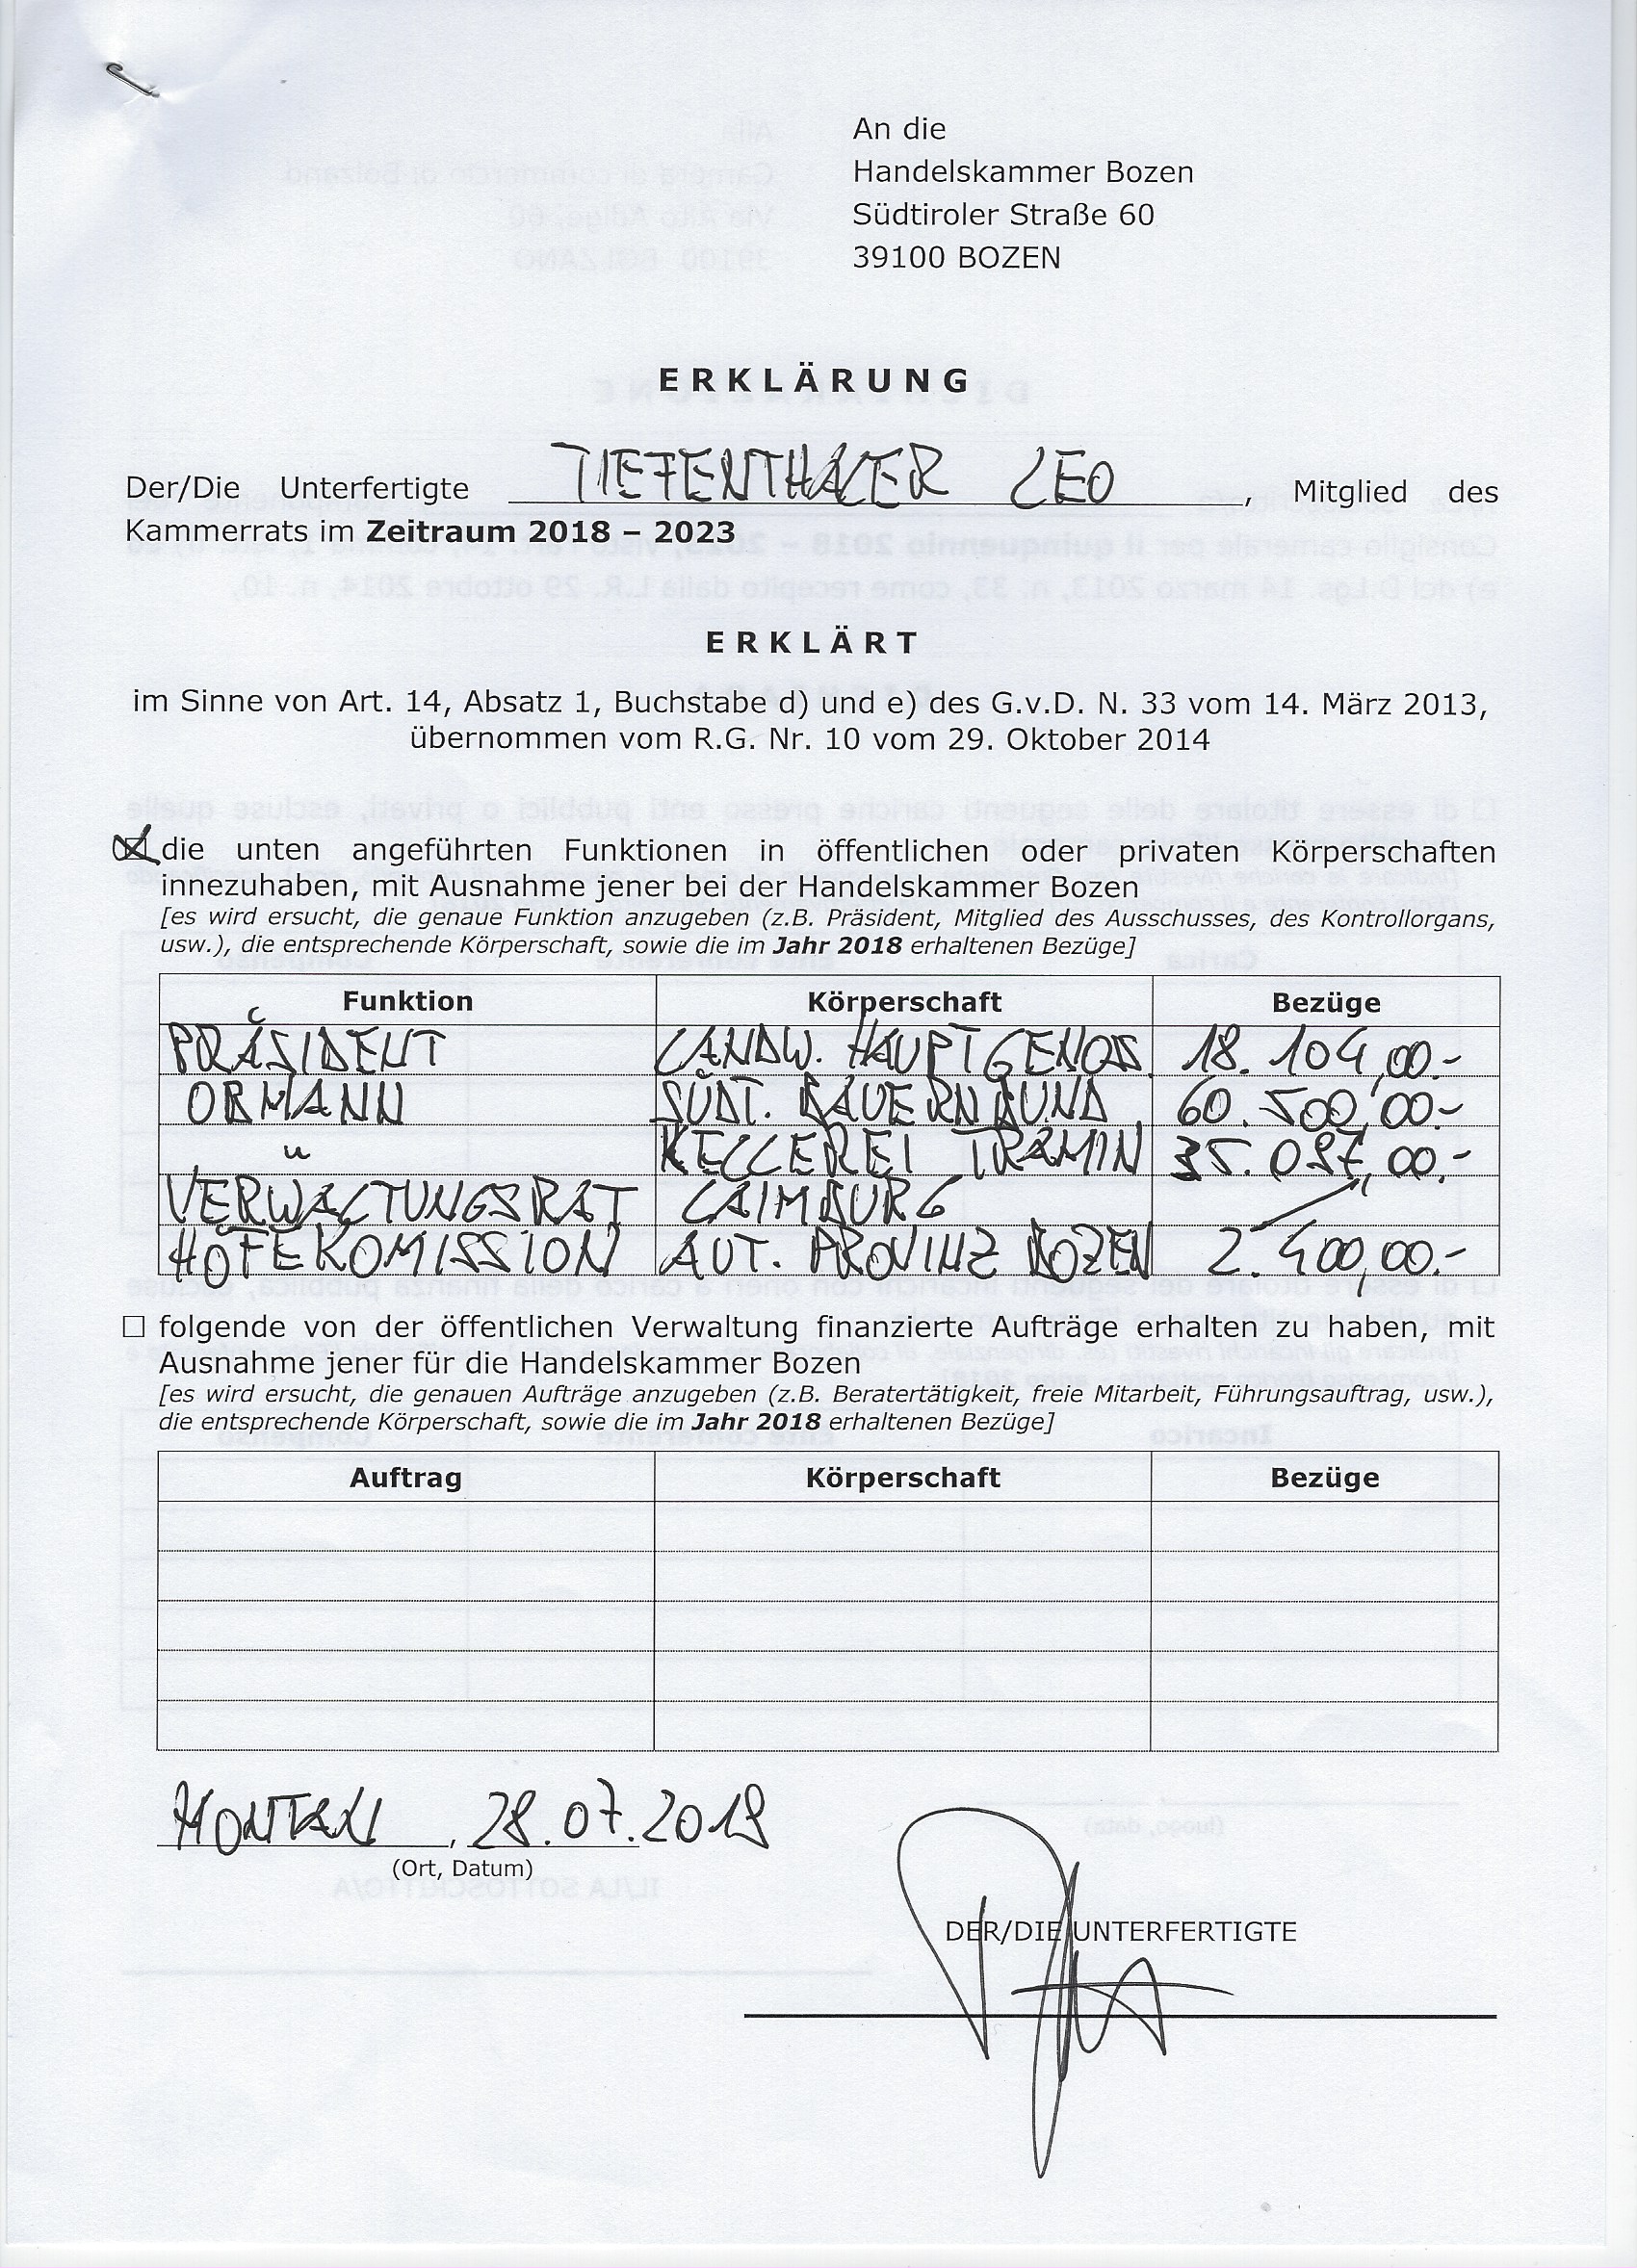 An die
Handelskammer Bozen
Südtiroler Straße 60
39100 BOZEN
ERKLÄRUNG
Der/Die Unterfertigte TIEFENTHALER LEO, Mitglied des
Kammerrats im Zeitraum 2018 – 2023
ERKLÄRT
im Sinne von Art. 14, Absatz 1, Buchstabe d) und e) des G.v.D. N. 33 vom 14. März 2013,
übernommen vom R.G. Nr. 10 vom 29. Oktober 2014
☒ die unten angeführten Funktionen in öffentlichen oder privaten Körperschaften
innezuhaben, mit Ausnahme jener bei der Handelskammer Bozen
[es wird ersucht, die genaue Funktion anzugeben (z.B. Präsident, Mitglied des Ausschusses, des Kontrollorgans,
usw.), die entsprechende Körperschaft, sowie die im Jahr 2018 erhaltenen Bezüge]
Funktion Körperschaft Bezüge
PRÄSIDENT LANDW. HAUPTGENOS. 18.104,00.-
OBMANN SÜDT. BAUERNBUND 60.500,00.-
" KELLEREI TRAMIN 35.087,00.-
VERWALTUNGSRAT LAIMBURG
HÖFEKOMISSION AUT. PROVINZ BOZEN 2.400,00.-
☐ folgende von der öffentlichen Verwaltung finanzierte Aufträge erhalten zu haben, mit
Ausnahme jener für die Handelskammer Bozen
[es wird ersucht, die genauen Aufträge anzugeben (z.B. Beratertätigkeit, freie Mitarbeit, Führungsauftrag, usw.),
die entsprechende Körperschaft, sowie die im Jahr 2018 erhaltenen Bezüge]
Auftrag Körperschaft Bezüge
MONTAN, 28.07.2019
(Ort, Datum)
DER/DIE UNTERFERTIGTE